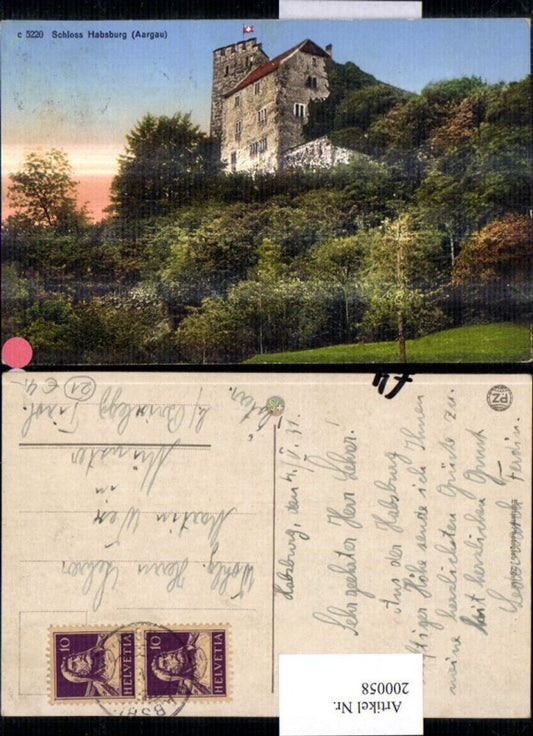 c 5220 Schloss Habsburg (Aargau)
21
€ 4.-
PZ
Habsburg, den 4./V. 31.
Sehr geehrter Herr Lehrer!
Aus der Habsburg
Höhe sende ich Ihnen
meine herzlichsten Grüße zu.
Mit herzlichem Gruß
Ferdin.
Wohlg. Herrn Lehrer
Martin
in
Münster
b/ Brixlegg Tirol.
10
HELVETIA
10
HELVETIA
Artikel Nr.
200058